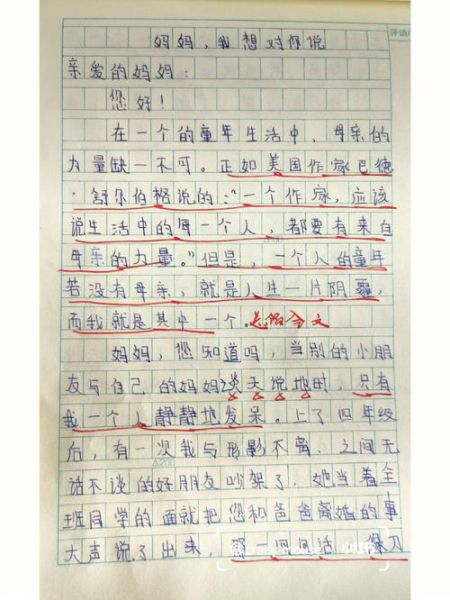 妈妈，我想对你说
亲爱的妈妈：
您好！
在一个的童年生活中，母亲的
力量缺一不可。正如美国作家巴德
·舒尔伯格说的："一个作家，应该
说生活中的每一个人，都要有来自
母亲的力量。"但是，一个人的童年
若没有母亲，就是人生一片阴霾，
而我就是其中一个。
妈妈，您知道吗，当别的小朋
友与自己的妈妈谈天说地时，只有
我一个人静静地发呆。上了四年级
后，有一次我与形影不离、之间无
话不谈的好朋友吵架了，她当着全
班同学的面就把您和爸爸离婚的事
大声说了出来，那一句句话，像刀